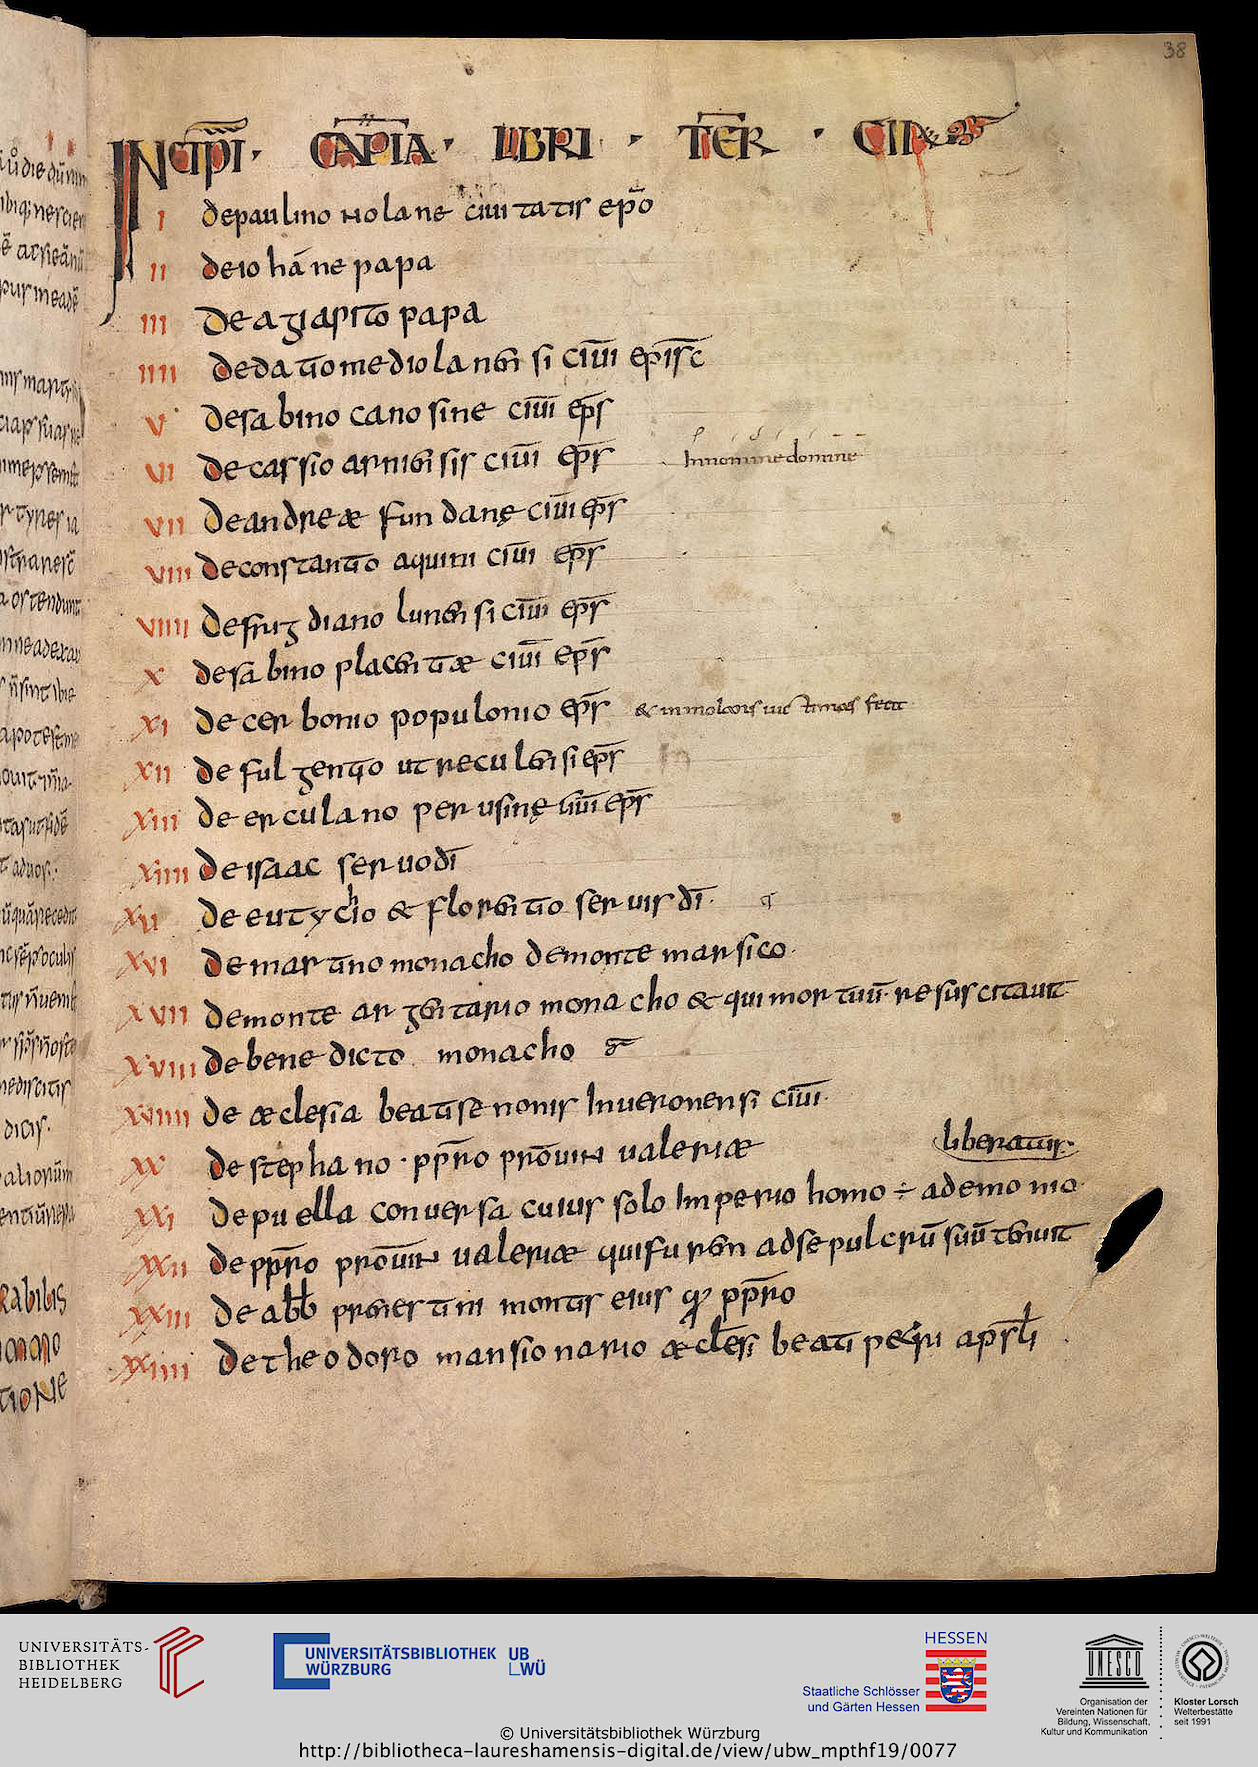 38
INCIPĪ · CAPĪA · LIBRI · TĒR · CII
I depaulino nolane ciuitatis ep̄o
II deiohāne papa
III De agiapito papa
IIII dedatio mediolanensi ciūi epīsc
V desabino canosine ciūi ēps
VI decassio arniensis ciūi ēps
Innomine domine
VII deandreæ fundanę ciūi ēps
VIII deconstantio aquini ciūi ēps
VIIII defrigdiano lunensi ciūi ēps
X desabino placentiæ ciūi ēps
XI de cerbonio populonio ēps
XII de fulgentio utreculensi ēps
XIII de erculano perusinę ciūi ēps
XIIII de isaac seruo dī
XV de eutychio & florentio seruis dī.
XVI demartino monacho demonte marsico.
XVII demonte argentario monacho & qui mortuū resuscitauit
XVIII debenedicto monacho
XVIIII de æclesia beati senonis Inueronensi ciūi.
XX de stephano · pp̄ro prōuin ualeriæ
liberatus.
XXI depuella conuersa cuius solo Imperio homo ÷ ademonio
XXII depp̄ro prōuin ualeriæ qui furem adsepulcrū suū tenuit
XXIII de abb̄ prenestini montis eius & pp̄ro
XXIIII detheodoro mansionario æclesi beati petri apsl̄i
UNIVERSITÄTS-
BIBLIOTHEK
HEIDELBERG
UNIVERSITÄTSBIBLIOTHEK
WÜRZBURG
UB
WÜ
HESSEN
Staatliche Schlösser
und Gärten Hessen
UNESCO
Organisation der
Vereinten Nationen für
Bildung, Wissenschaft,
Kultur und Kommunikation
Kloster Lorsch
Welterbestätte
seit 1991
© Universitätsbibliothek Würzburg
http://bibliotheca-laureshamensis-digital.de/view/ubw_mpthf19/0077